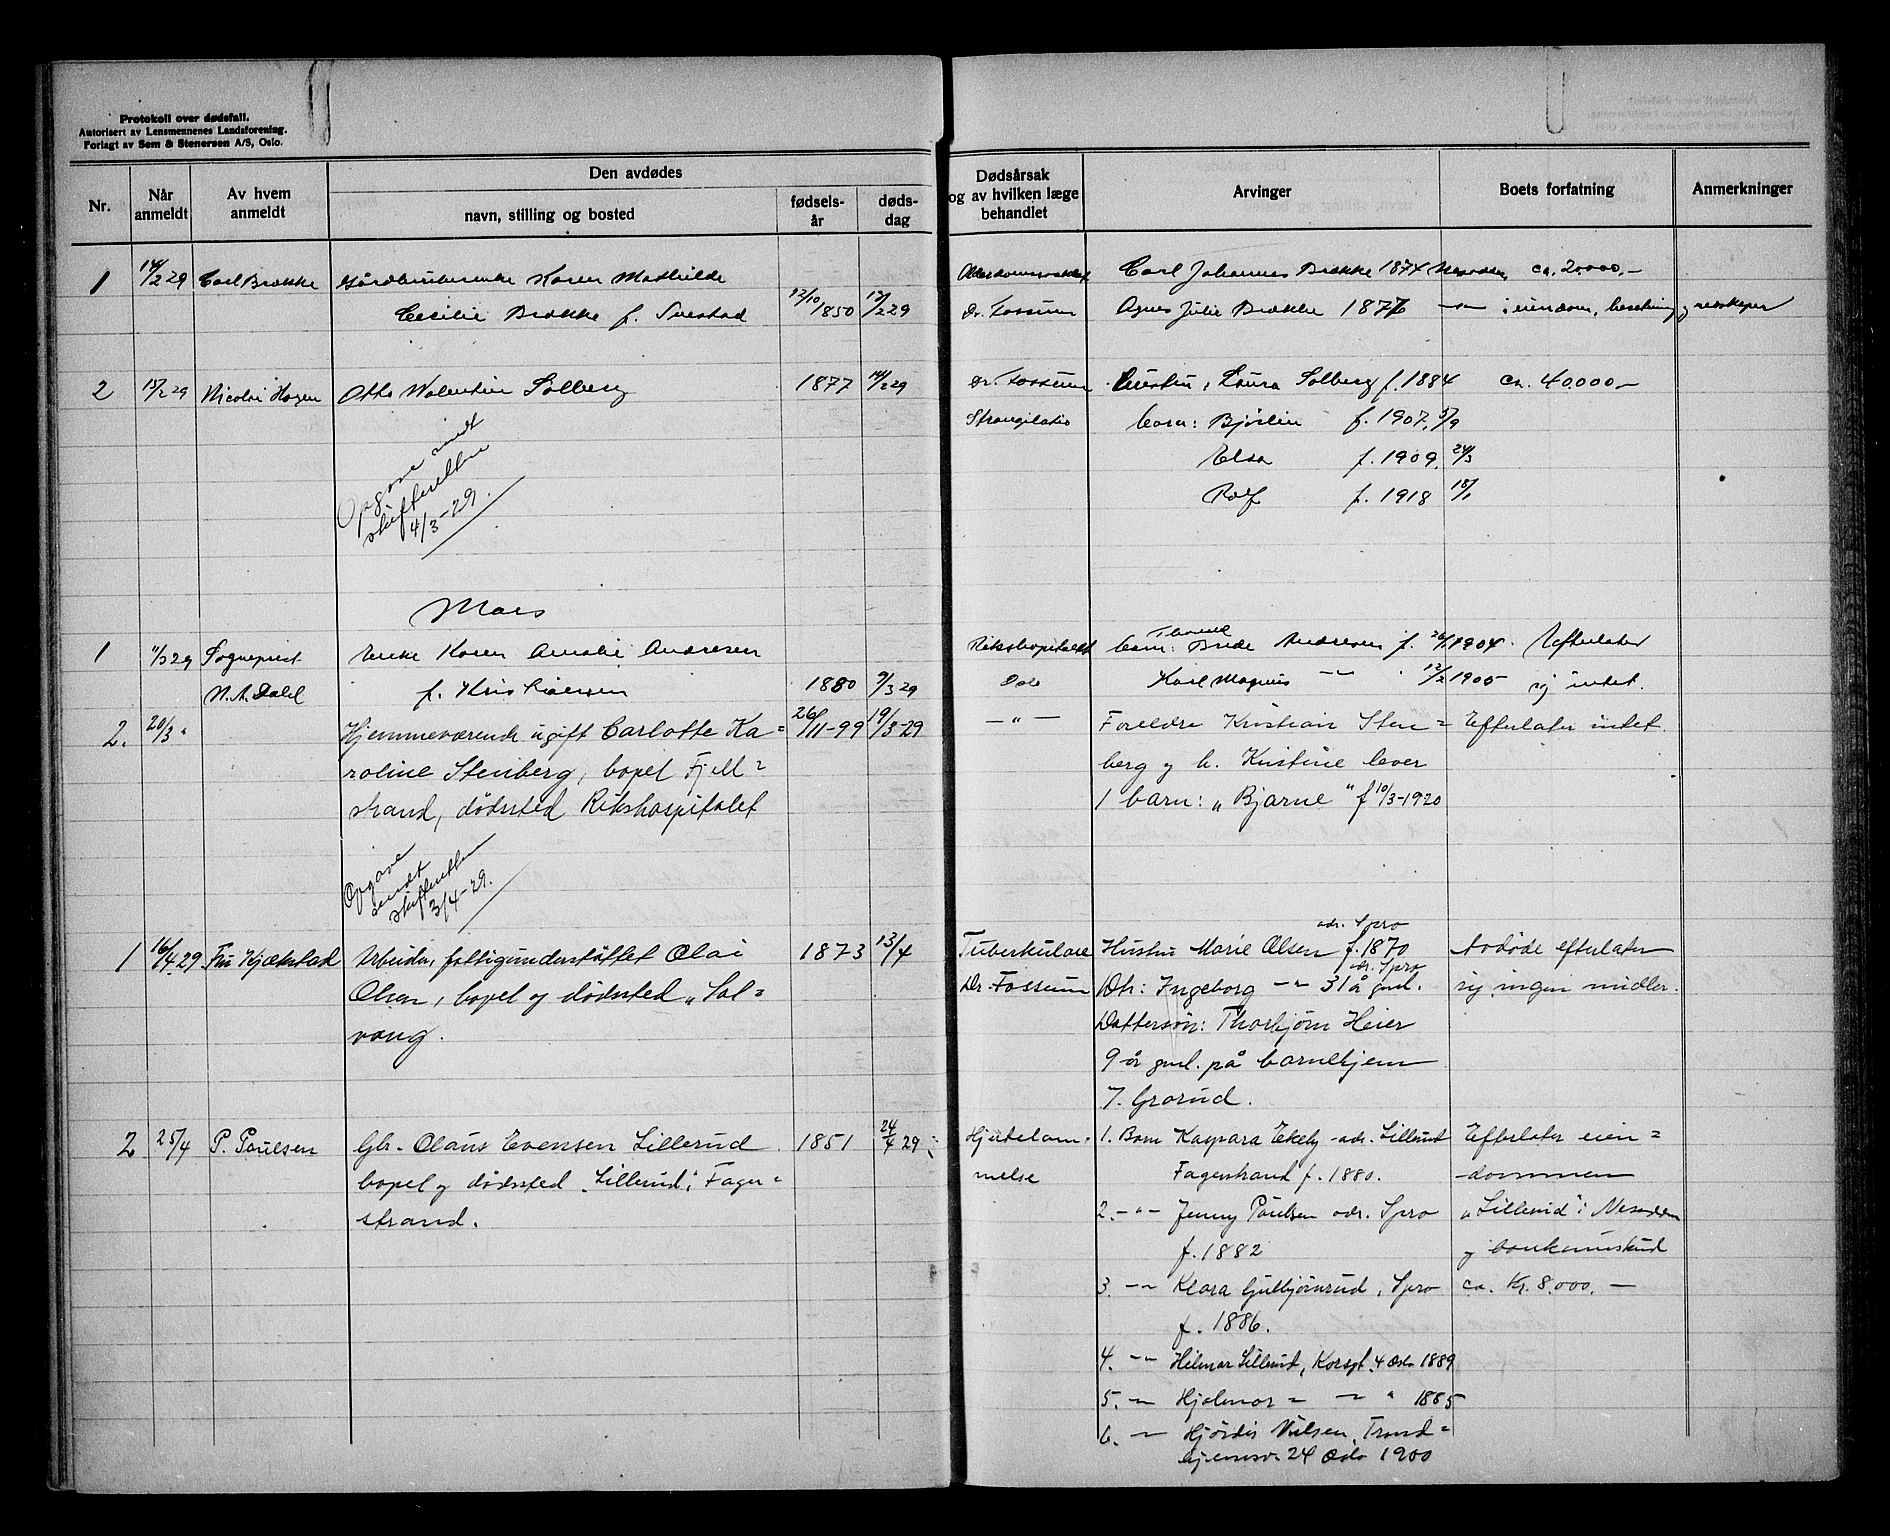 Protokoll over dødsfall.
Autorisert av Lensmennenes Landsforening.
Forlagt av Sem & Stenersen A/S, Oslo.
Nr.
Når anmeldt
Av hvem anmeldt
Den avdødes
navn, stilling og bosted
fødsels-år
døds-dag
Dødsårsak og av hvilken læge behandlet
Arvinger
Boets forfatning
Anmerkninger
1 14/2 29 Carl Brække Karen Mathilde Carl Johannes Brække 1874 ca. 20000,-
Cecilie Brække f. 12/10 1850 12/2 29 Dr. Fossum Agnes Julie Brække 1876 -"- i eiendom, besetning og redskaper
2 15/2 29 Nicolai Hagen Otto Walentin Solberg 1877 14/2 29 Dr. Fossum Hustru, Laura Solberg f. 1884 ca. 40.000-
Strangulatio barn: Bjørlin f. 1907, 5/9
Elsa f. 1909, 24/3
Rolf f. 1918 18/1
Opgave sendt
skifteretten
4/3-29.
Mars
1 11/3 29 Sogneprest Enke Karen Amalie Andresen Rikshospitalet barn: Andresen f. 1904. Efterlater
N. A. Dahl f. Kristiansen 1880 9/3 29 Oslo Karl Magnus -"- 12/2 1905 ej intet.
2. 20/3 " Hjemmeværende ugift Carlotte Ka= 26/11-99 19/3-29 -"- Foreldre Kristian Sten= Efterlater intet.
roline Stenberg, bopel Fjell= berg og h. Kristine lever
strand, dødssted Rikshospitalet 1 barn: "Bjarne" f 10/3-1920
Opgave
sendt
skifteretten
3/4-29.
adr. Spro
1 16/4 29 Fru Kjækstad Arbeider, fattigunderstøttet Olai 1873 13/4 Tuberkulose Hustru Marie Olsen f. 1870 Avdøde efterlater
adr. Spro
Olsen, bopel og dødssted "Sol= Dr. Fossum Dtr: Ingeborg -"- 31 år gml. ej ingen midler.
vang. Dattersøn: Thorbjørn Heier
9 år gml. på barnehjem
i Grorud.
2 25/4 P. Paulsen Gbr. Olaus Evensen Lillerud 1851 24/4 29 Hjertelam= 1. Barn Kaspara Ekeby adr. Lillerud Efterlater eien=
bopel og dødssted "Lillerud", Fager= melse Fagerstrand f. 1880. dommen
strand. 2. -"- Jenny Paulsen adr. Spro "Lillerud" i Nesodden
f. 1882 og bankinnskud
3. -"- Klara Gulbjørnrud, Spro ca. Kr. 8.000.-
f. 1886.
4. -"- Hilmar Lillerud, Korsgt. 4 Oslo 1889
5. -"- Hjalmar -"- -"- " 1885
6. -"- Hjørdis Nilsen, Trond=
hjemsv. 24 Oslo 1900